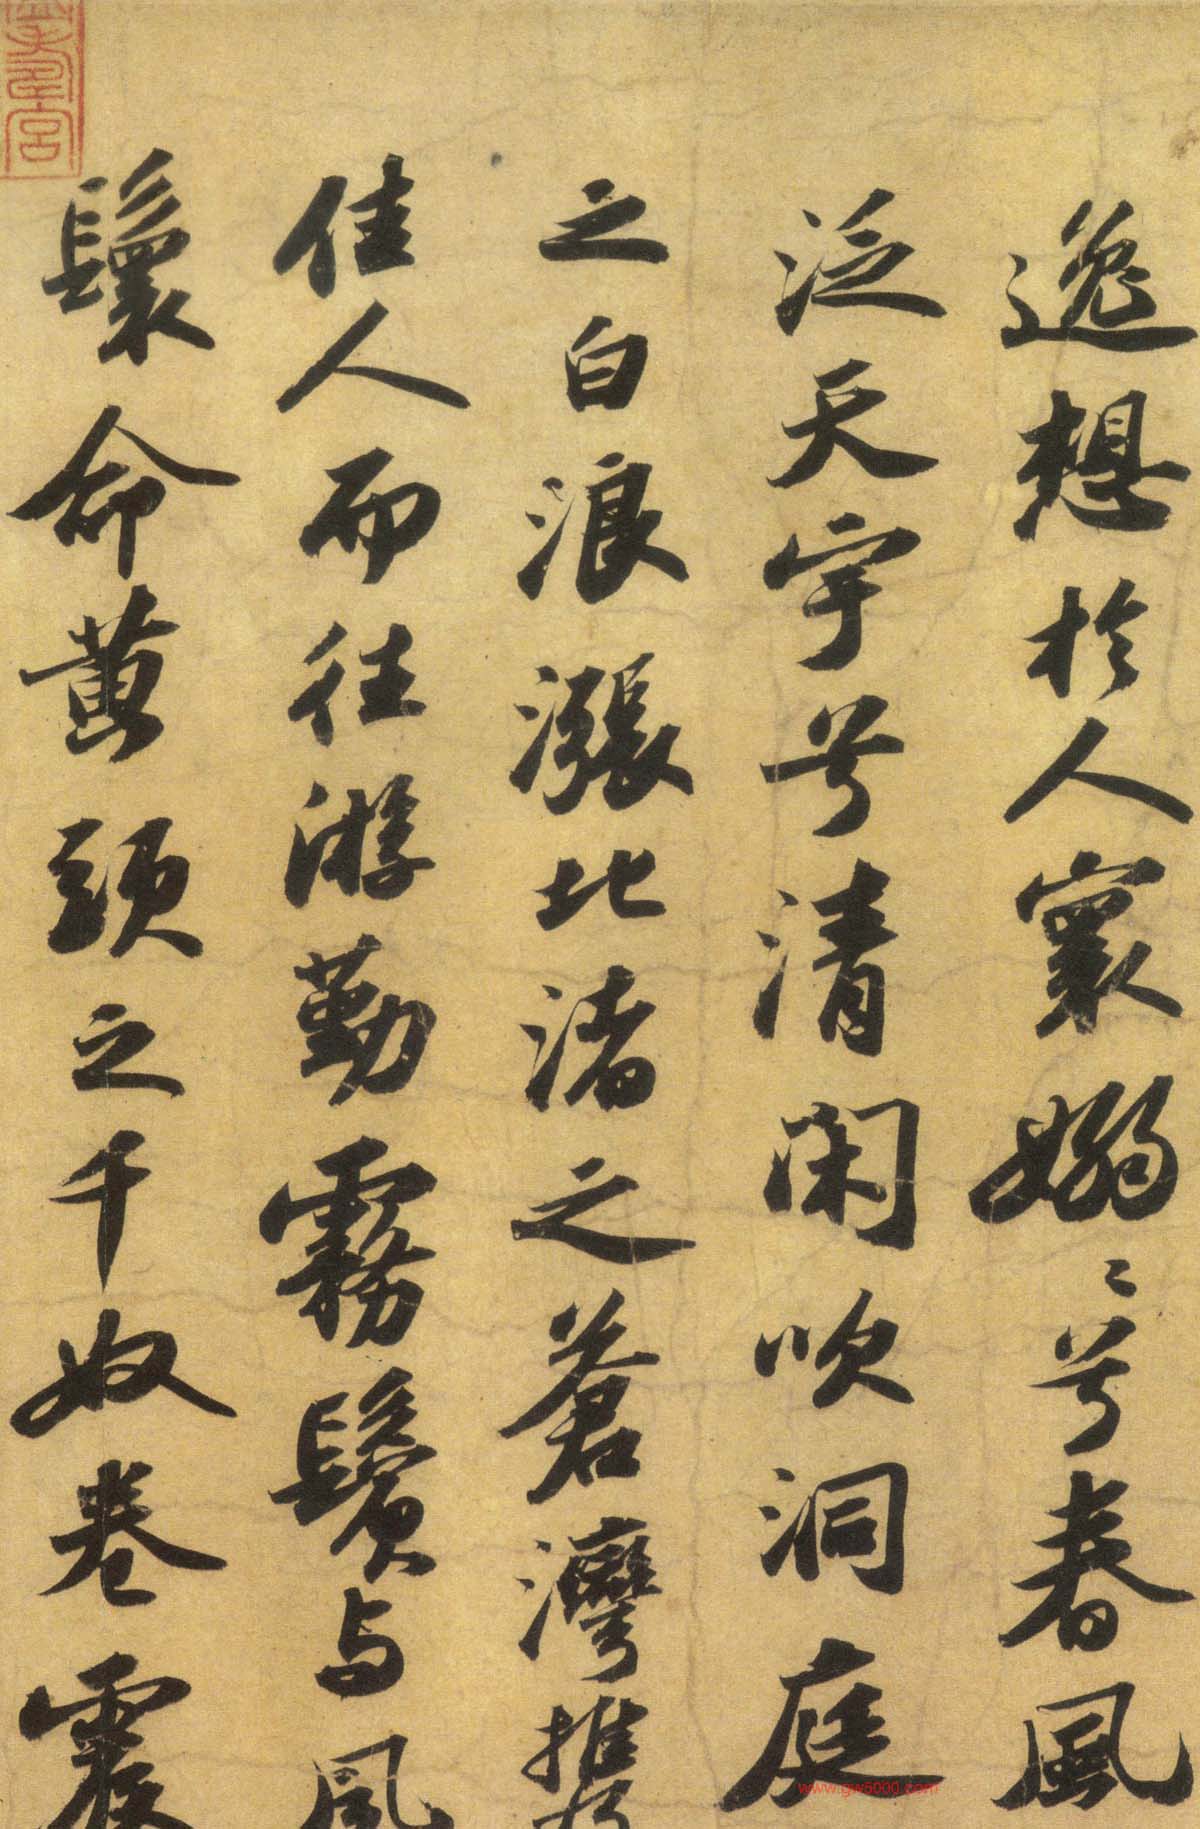 逸想於人寰嫋〻兮春風
泛天宇兮清閑吹洞庭
之白浪漲北渚之蒼灣攜
佳人而往游勤霧鬢与風
鬟命黄頭之千奴卷震
www.gw5000.com